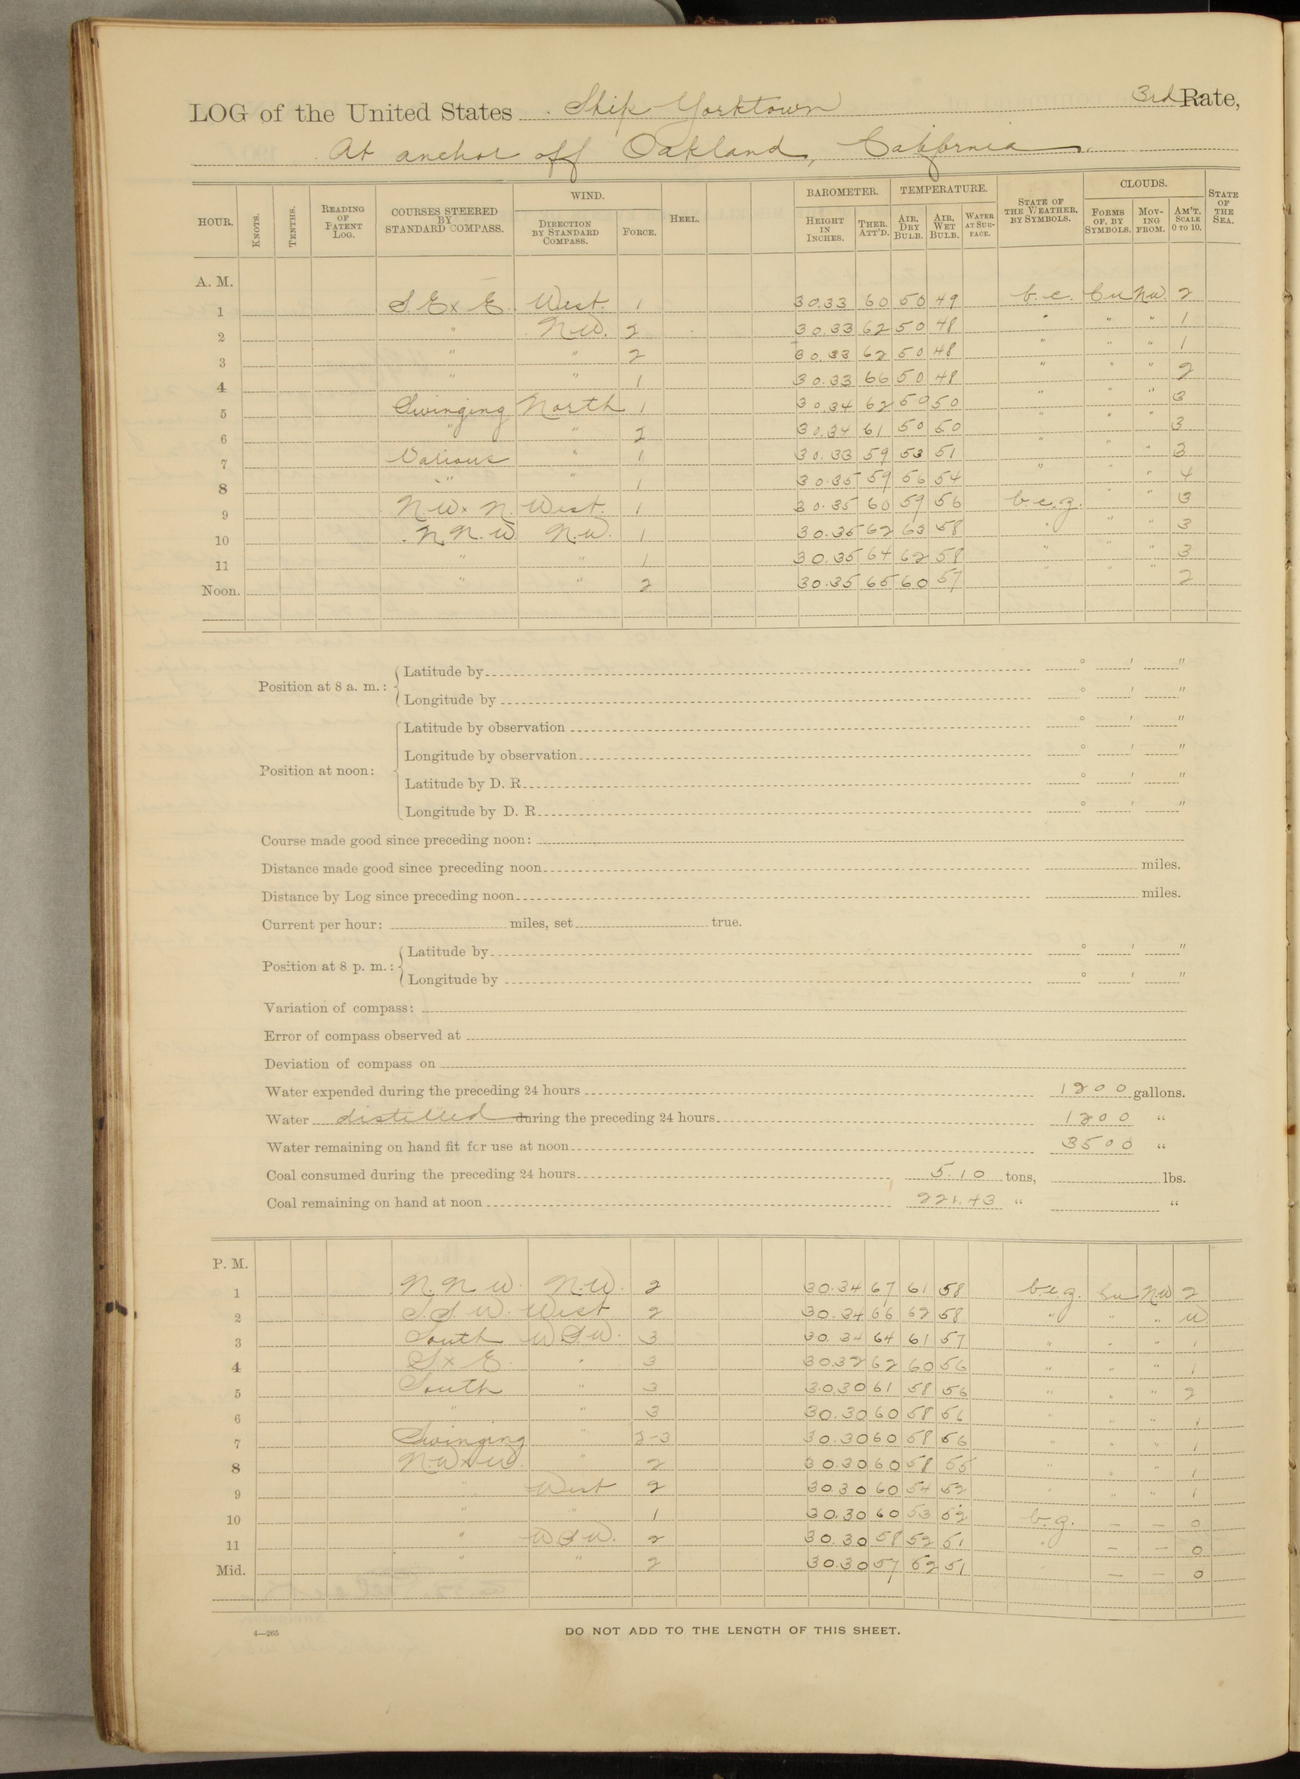 LOG of the United States Ship Yorktown 3rd Rate,
At anchor off Oakland, California.
HOUR. KNOTS. TENTHS. READING OF PATENT LOG. COURSES STEERED BY STANDARD COMPASS. WIND. DIRECTION BY STANDARD COMPASS. FORCE. HEEL. BAROMETER. HEIGHT IN INCHES. THER. ATT'D. TEMPERATURE. AIR, DRY BULB. AIR, WET BULB. WATER AT SURFACE. STATE OF THE WEATHER, BY SYMBOLS. CLOUDS. FORMS OF, BY SYMBOLS. MOVING FROM. AM'T. SCALE 0 TO 10. STATE OF THE SEA.
A. M.
1 S E x E. West. 1 30.33 60 50 49 b.c. Cu NW 2
2 " N.W. 2 30.33 62 50 48 " " " 1
3 " " 2 30.33 62 50 48 " " " 1
4 " " 1 30.33 66 50 48 " " " 2
5 Swinging North 1 30.34 62 50 50 " " " 3
6 " " 2 30.34 61 50 50 " " " 3
7 Various " 1 30.33 59 53 51 " " " 3
8 " " 1 30.35 59 56 54 " " " 4
9 N W x N. West. 1 30.35 60 59 56 b.c.g. " " 3
10 N. N. W N.W. 1 30.35 62 63 58 " " " 3
11 " " 1 30.35 64 62 58 " " " 3
Noon. " " 2 30.35 65 60 57 " " 2
Position at 8 a. m.: Latitude by ° ′ ″
Longitude by ° ′ ″
Latitude by observation ° ′ ″
Position at noon: Longitude by observation ° ′ ″
Latitude by D. R. ° ′ ″
Longitude by D. R. ° ′ ″
Course made good since preceding noon:
Distance made good since preceding noon miles.
Distance by Log since preceding noon miles.
Current per hour: miles, set true.
Position at 8 p. m.: Latitude by ° ′ ″
Longitude by ° ′ ″
Variation of compass:
Error of compass observed at
Deviation of compass on
Water expended during the preceding 24 hours 1200 gallons.
Water distilled during the preceding 24 hours 1200 "
Water remaining on hand fit for use at noon 3500 "
Coal consumed during the preceding 24 hours 5.10 tons, lbs.
Coal remaining on hand at noon 221.43 " "
P. M.
1 N. N. W. N.W. 2 30.34 67 61 58 b.c.g. Cu NW 2
2 S. S. W. West 2 30.34 66 62 58 " " "
3 South W S W. 3 30.34 64 61 57 " " " 1
4 S x E. " 3 30.32 62 60 56 " " " 1
5 South " 3 30.30 61 58 56 " " " 2
6 " " 3 30.30 60 58 56 " " " 1
7 Swinging " 2-3 30.30 60 58 56 " " " 1
8 N W x W. " 2 30.30 60 58 55 " " " 1
9 " West 2 30.30 60 54 52 " " " 1
10 " " 1 30.30 60 53 52 b.g. — — 0
11 " W S W. 2 30.30 58 52 51 " — — 0
Mid. " " 2 30.30 57 52 51 — — 0
4—265 DO NOT ADD TO THE LENGTH OF THIS SHEET.